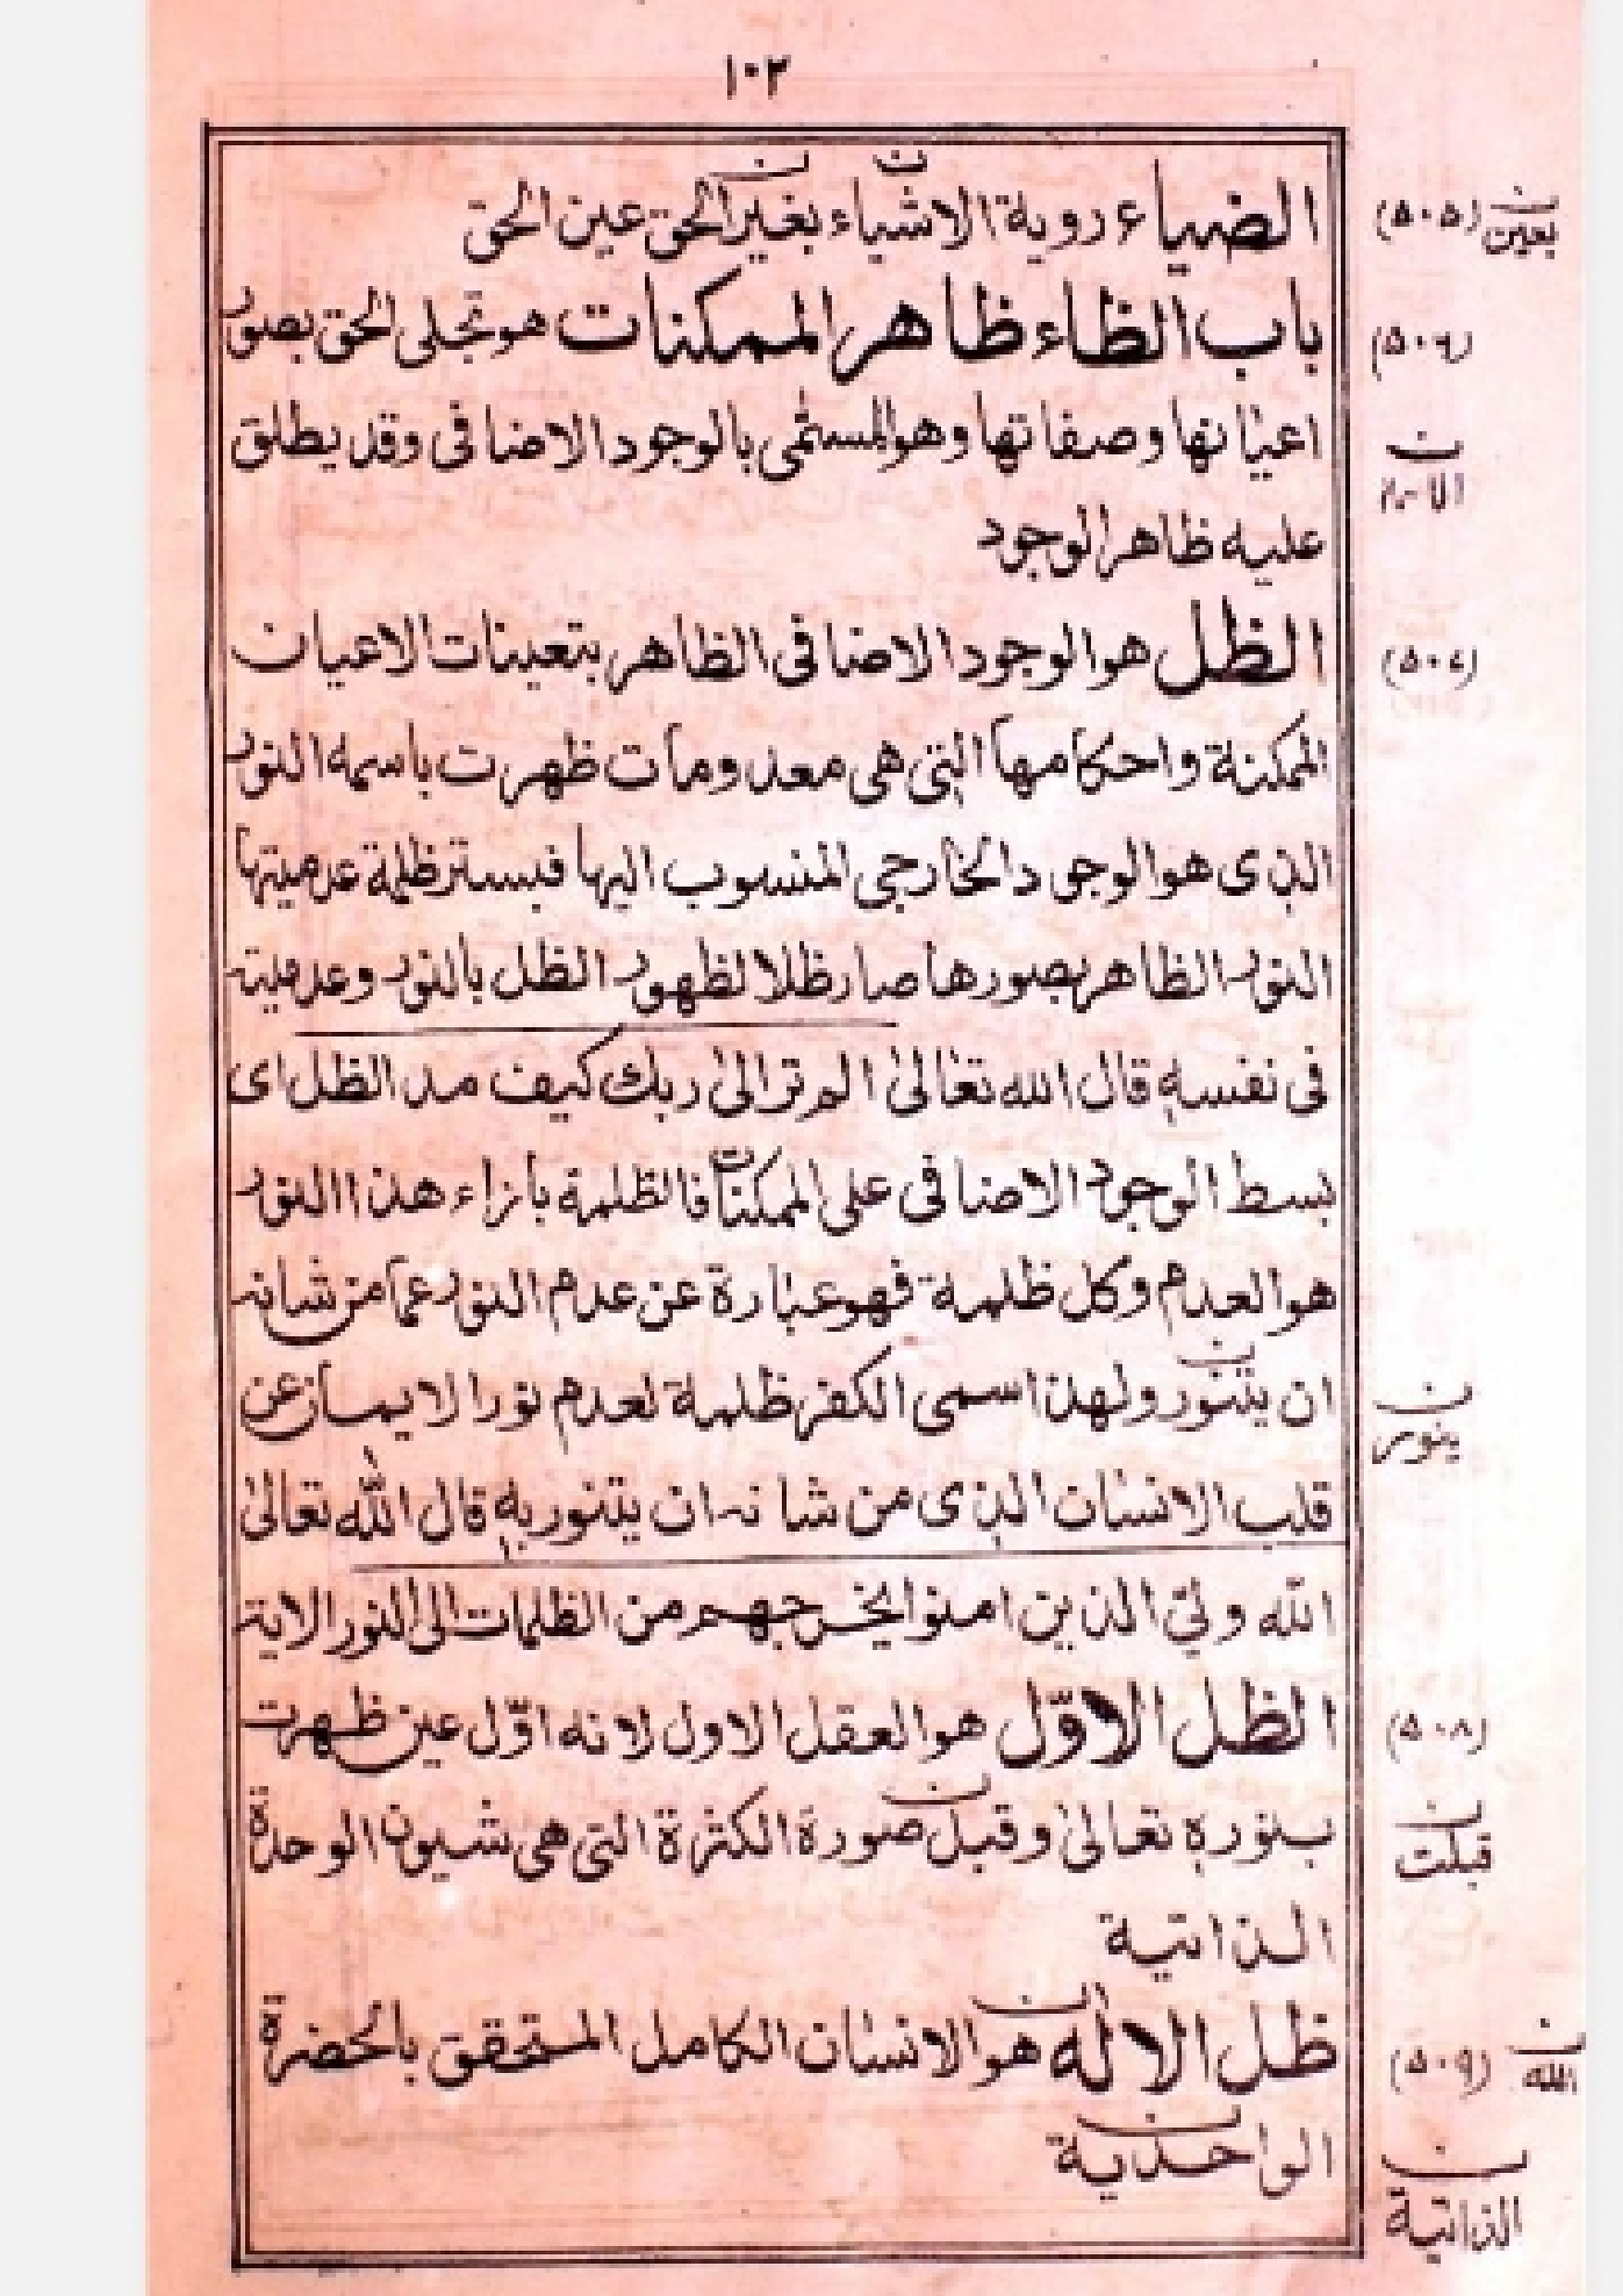 ١٠٢
الضياء روية الاشياء بغير الحق عين الحق
(٥٠٥) ن بعين
باب الظاء ظاهر الممكنات هو تجلى الحق بصور
(٥٠٦)
اعيانها وصفاتها وهو المسمى بالوجود الاضافى وقد يطلق
ن
عليه ظاهر الوجود
الظل هو الوجود الاضافى الظاهر بتعينات الاعيان
(٥٠٧)
الممكنة واحكامها التى هى معدومات ظهرت باسمه النور
الذى هو الوجود الخارجى المنسوب اليها فيستر ظلمة عدميتها
النور الظاهر بصورها صار ظلا لظهور الظل بالنور وعدميته
فى نفسه قال الله تعالى الم تر الى ربك كيف مد الظل اى
بسط الوجود الاضافى على الممكنات فالظلمة بازاء هذا النور
هو العدم وكل ظلمة فهو عبارة عن عدم النور عما من شانه
ان يتنور ولهذا سمى الكفر ظلمة لعدم نور الايمان عن
ن ينور
قلب الانسان الذى من شانه ان يتنور به قال الله تعالى
الله ولىّ الذين امنوا يخرجهم من الظلمات الى النور الاية
الظل الاوّل هو العقل الاول لانه اوّل عين ظهرت
(٥٠٨)
بنوره تعالى وقبل صورة الكثرة التى هى شيون الوحدة
ن قبلت
الذاتية
ظل الاله هو الانسان الكامل المتحقق بالحضرة
(٥٠٩) ن الله
الواحدية
ن الذاتية